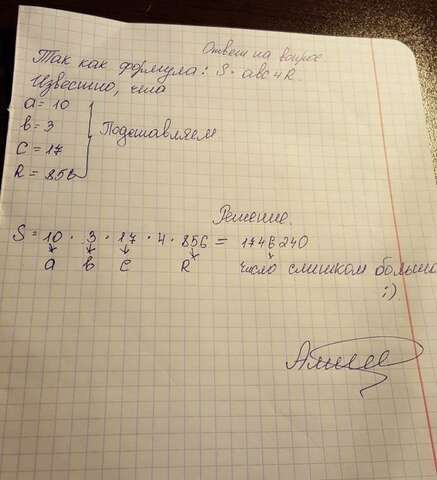 Ответ на вопрос
Так как формула: S= abc4R.
Известно, что
a = 10
b = 3
c = 17
R = 856
Подставляем
Решение.
S = 10 · 3 · 17 · 4 · 856 = 1746240
a b c R число слишком больш
:).